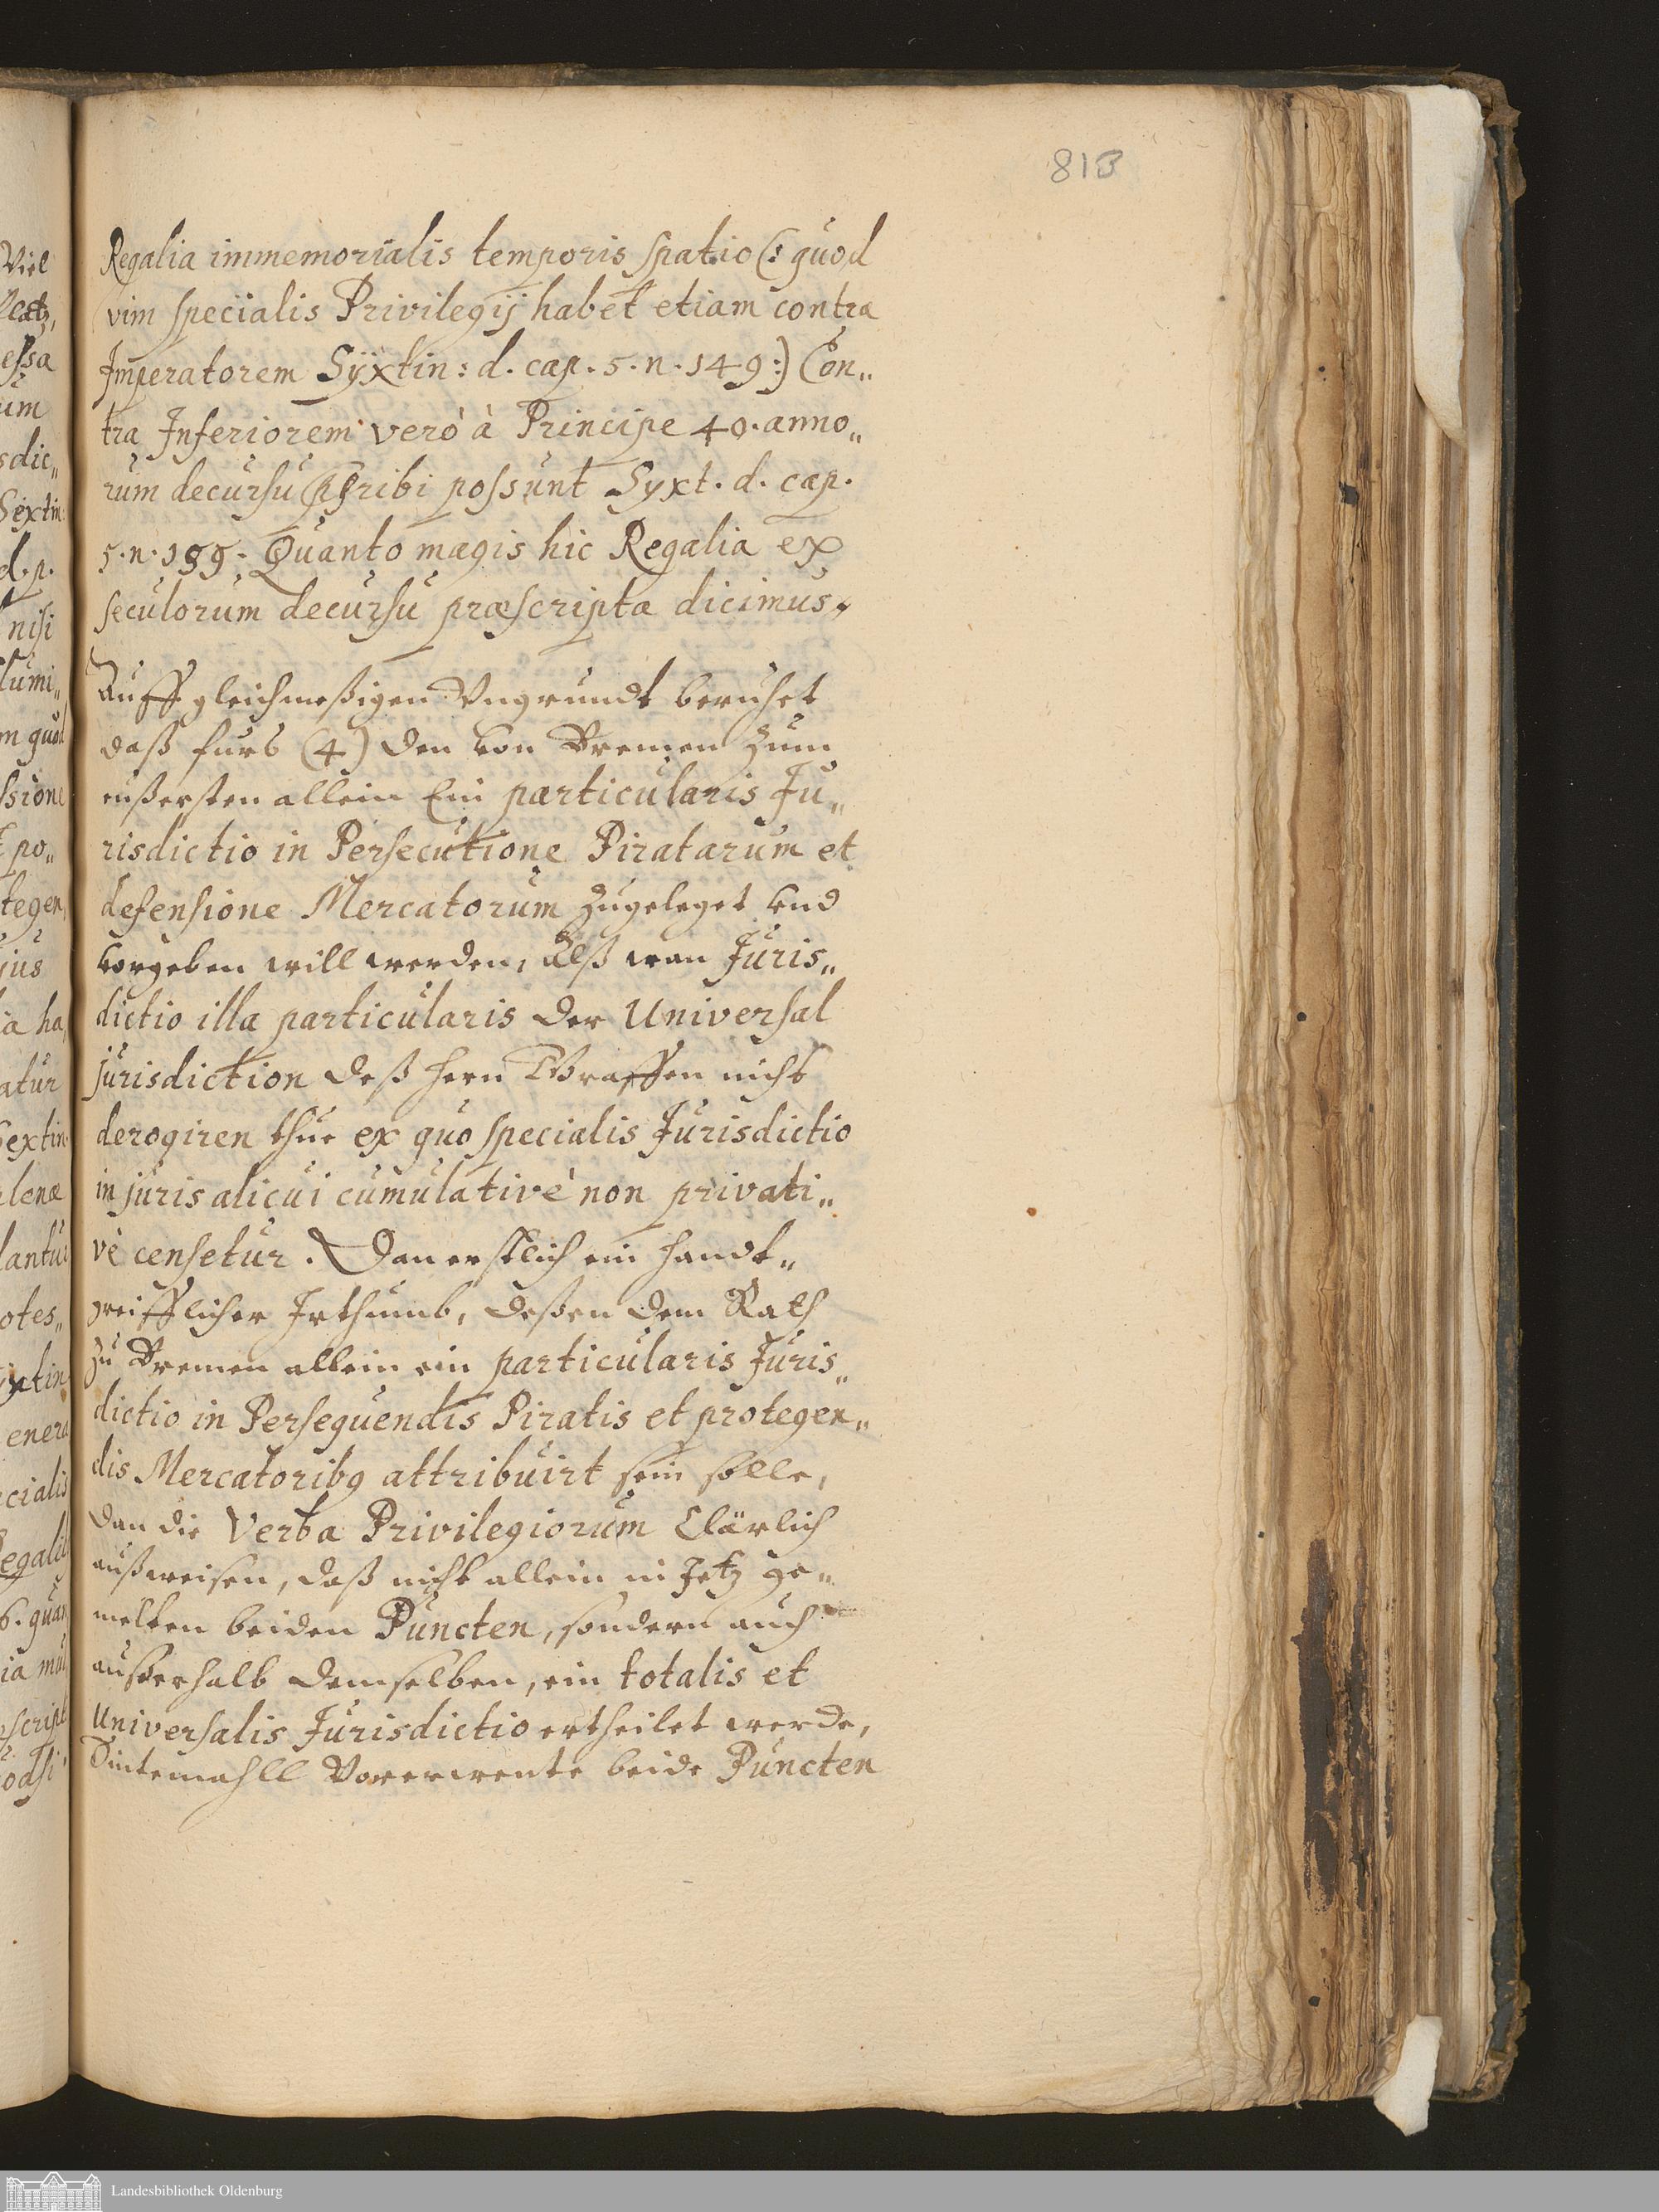 813
Regalia immemorialis temporis spatio (: quod
vim specialis Privilegij habet etiam contra
Imperatorem Syxtin: d. cap. 5. n. 149:) Con„
tra Inferiorem verò à Principe 40. anno„
rum decursu pscribi possunt Syxt. d. cap.
5. n. 199. Quanto magis hic Regalia ex
seculorum decursu præscripta dicimus,
Auff gleichmeßigen Vngrundt beruhet
daß furs (4) den von Bremen zum
eußersten allein Ein particularis Ju„
risdictio in Persecutione Piratarum et
defensione Mercatorum zugeleget vnd
vorgeben will werden, Alß wan Juris„
dictio illa particularis der Universal
jurisdiction deß hern Graffen nicht
derogiren thue ex quo specialis Jurisdictio
in juris alicui cumulativè non privati„
vè censetur. Dan erstlich ein handt„
greifflicher Irthumb, deßen dem Rath
zu Bremen allein ein particularis Juris„
dictio in Persequendis Piratis et protegen„
dis Mercatoribꝯ attribuirt sein solle,
Dan die Verba Privilegiorum Clärlich
außweisen, daß nicht allein in Jetz ge„
melten beiden Puncten, sondern auch
außerhalb demselben, ein totalis et
Universalis Jurisdictio ertheilet werde,
Sintemahll Vorerwente beide Puncten
Viel
essa
um
sdic„
Sextin:
d. p.
nisi
lumi„
m quod
ssione
t po„
tegen
jus
ia ha
atur
Sextin
lenæ
lantur
otes„
enera
ecialis
Regalib
6. quan
script
Landesbibliothek Oldenburg